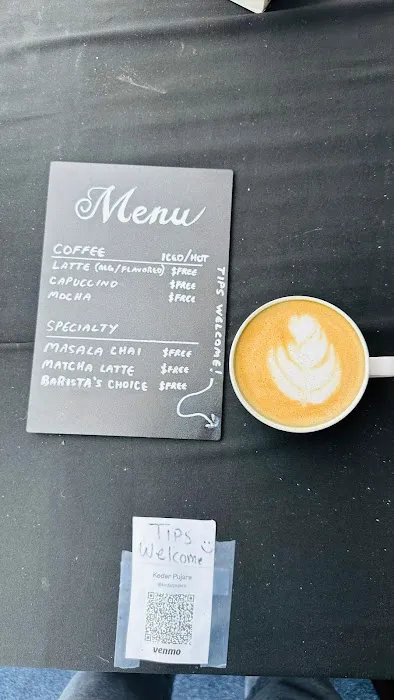 Menu
COFFEE ICED/HOT
LATTE (REG/FLAVORED) $FREE
CAPUCCINO $FREE
MOCHA $FREE
SPECIALTY
MASALA CHAI $FREE
MATCHA LATTE $FREE
BARISTA'S CHOICE $FREE
TIPS WELCOME!
TIPS
Welcome
Kedar Pujara
venmo